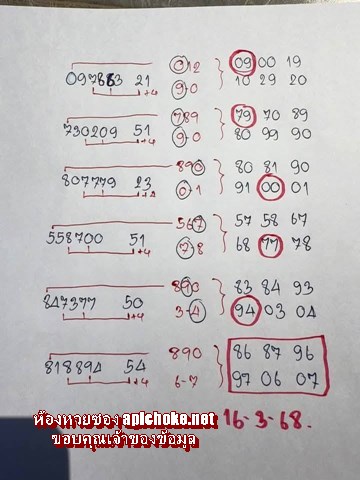 097863 21 +4 012 9-0 09 00 19
10 29 20
730209 51 +4 789 9-0 79 70 89
80 99 90
807779 23 +2 890 0-1 80 81 90
91 00 01
558700 51 +4 567 7-8 57 58 67
68 77 78
847377 50 +4 890 3-4 83 84 93
94 03 04
818894 54 +4 890 6-7 86 87 96
97 06 07
ห้องหวยซอง apichoke.net 16-3-68.
ขอบคุณเจ้าของข้อมูล